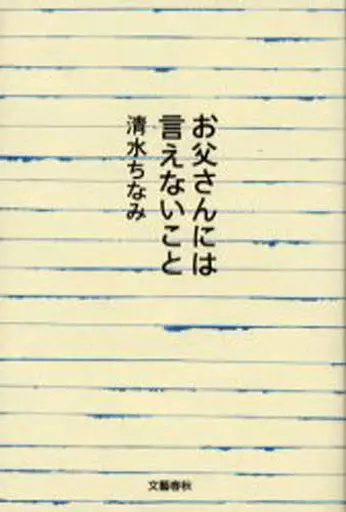 お父さんには
言えないこと
清水ちなみ
文藝春秋